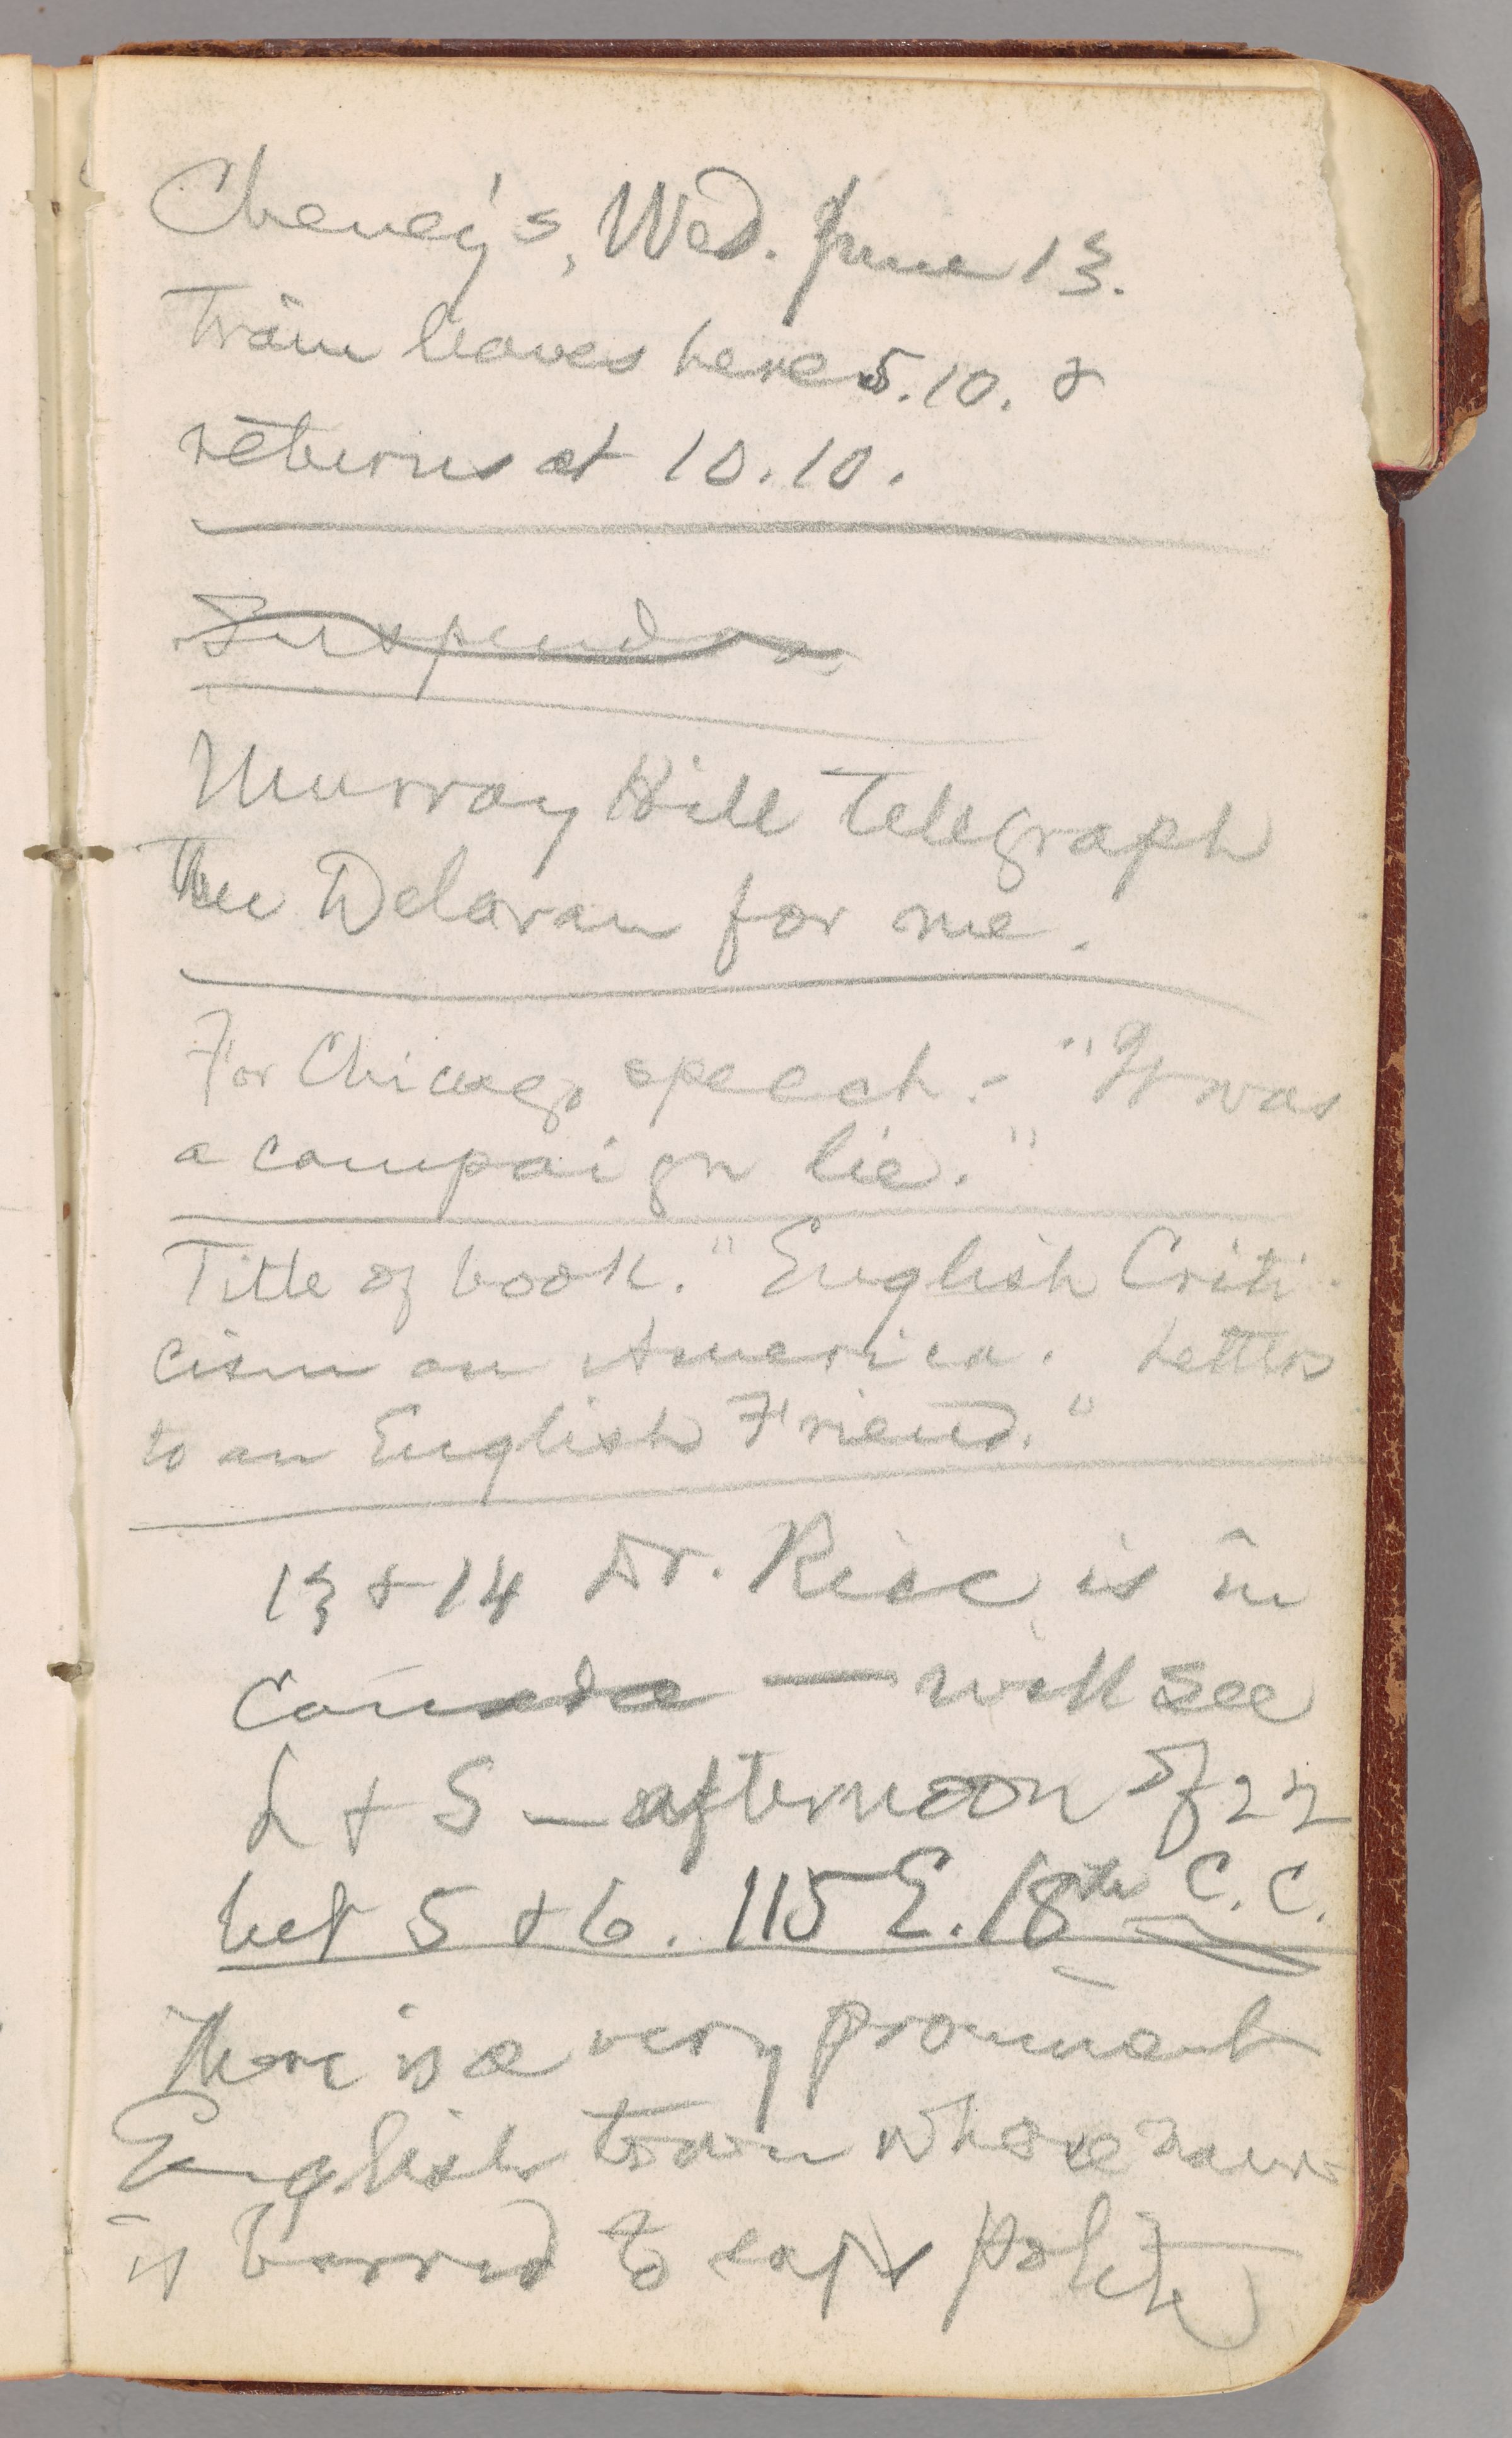 Cheney's, Wed. June 13.
Train leaves here 5.10. &
returns at 10.10.
Suspenders
Murray Hill telegraph
the Delavan for me.
For Chicago speech:- "It was
a campaign lie."
Title of book. "English Criti-
cism on America. Letters
to an English Friend."
13 & 14 Dr. Rice is in
Canada — will see
L & S — afternoon of 22
bet 5 & 6. 115 E. 18th C.C.
There is a very prominent
English town whose name
is barred to polite